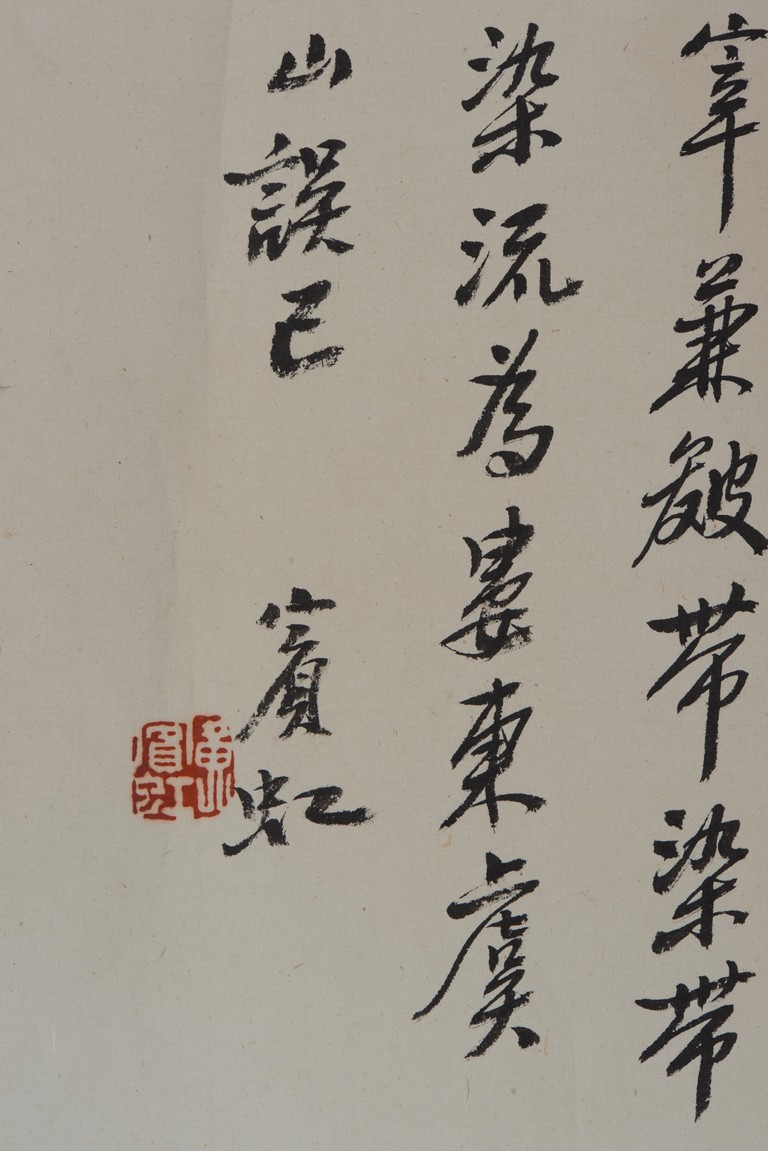 宰兼皴帶染帶
染流為婁東虞
山誤已
賓虹
黃山賓虹